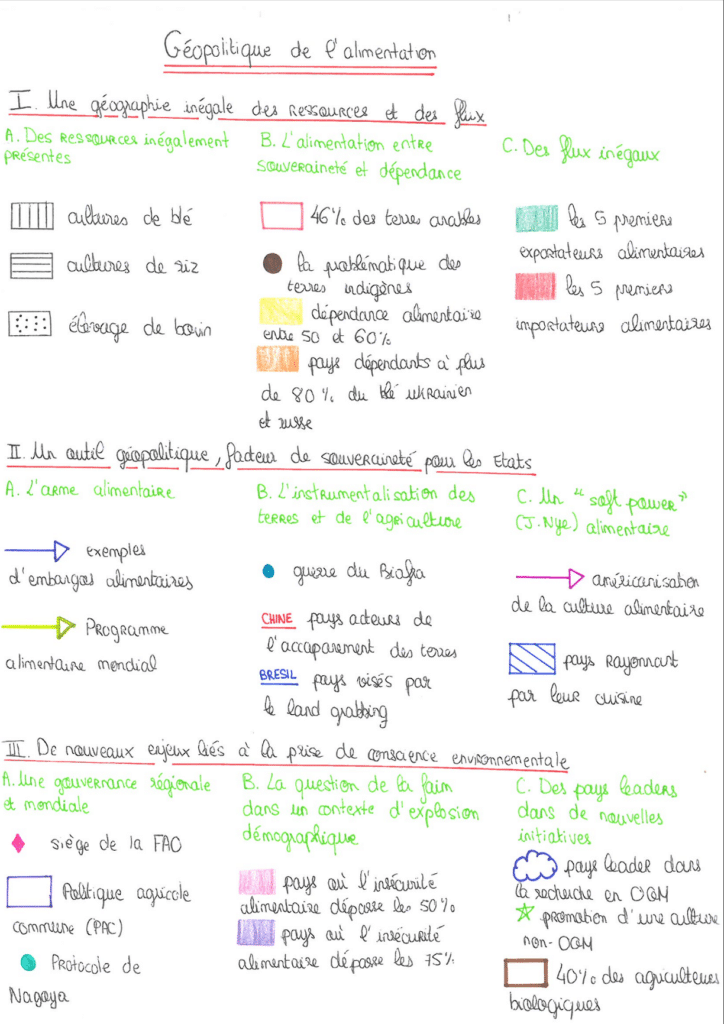 Géopolitique de l'alimentation
I. Une géographie inégale des ressources et des flux
A. Des ressources inégalement
présentes
cultures de blé
cultures de riz
élevage de bovin
B. L'alimentation entre
souveraineté et dépendance
46% des terres arables
la problématique des
terres indigènes
dépendance alimentaire
entre 50 et 60%
pays dépendants à plus
de 80% du blé ukrainien
et russe
C. Des flux inégaux
les 5 premiers
exportateurs alimentaires
les 5 premiers
importateurs alimentaires
II. Un outil géopolitique, facteur de souveraineté pour les Etats
A. L'arme alimentaire
exemples
d'embargos alimentaires
Programme
alimentaire mondial
B. L'instrumentalisation des
terres et de l'agriculture
guerre du Biafra
CHINE pays acteurs de
l'accaparement des terres
BRESIL pays visés par
le land grabbing
C. Un "soft power"
(J.Nye) alimentaire
américanisation
de la culture alimentaire
pays rayonnant
par leur cuisine
III. De nouveaux enjeux liés à la prise de conscience environnementale
A. Une gouvernance régionale
et mondiale
siège de la FAO
Politique agricole
commune (PAC)
Protocole de
Nagoya
B. La question de la faim
dans un contexte d'explosion
démographique
pays où l'insécurité
alimentaire dépasse les 50%
pays où l'insécurité
alimentaire dépasse les 75%
C. Des pays leaders
dans de nouvelles
initiatives
pays leader dans
la recherche en OGM
promotion d'une culture
non-OGM
40% des agriculteurs
biologiques